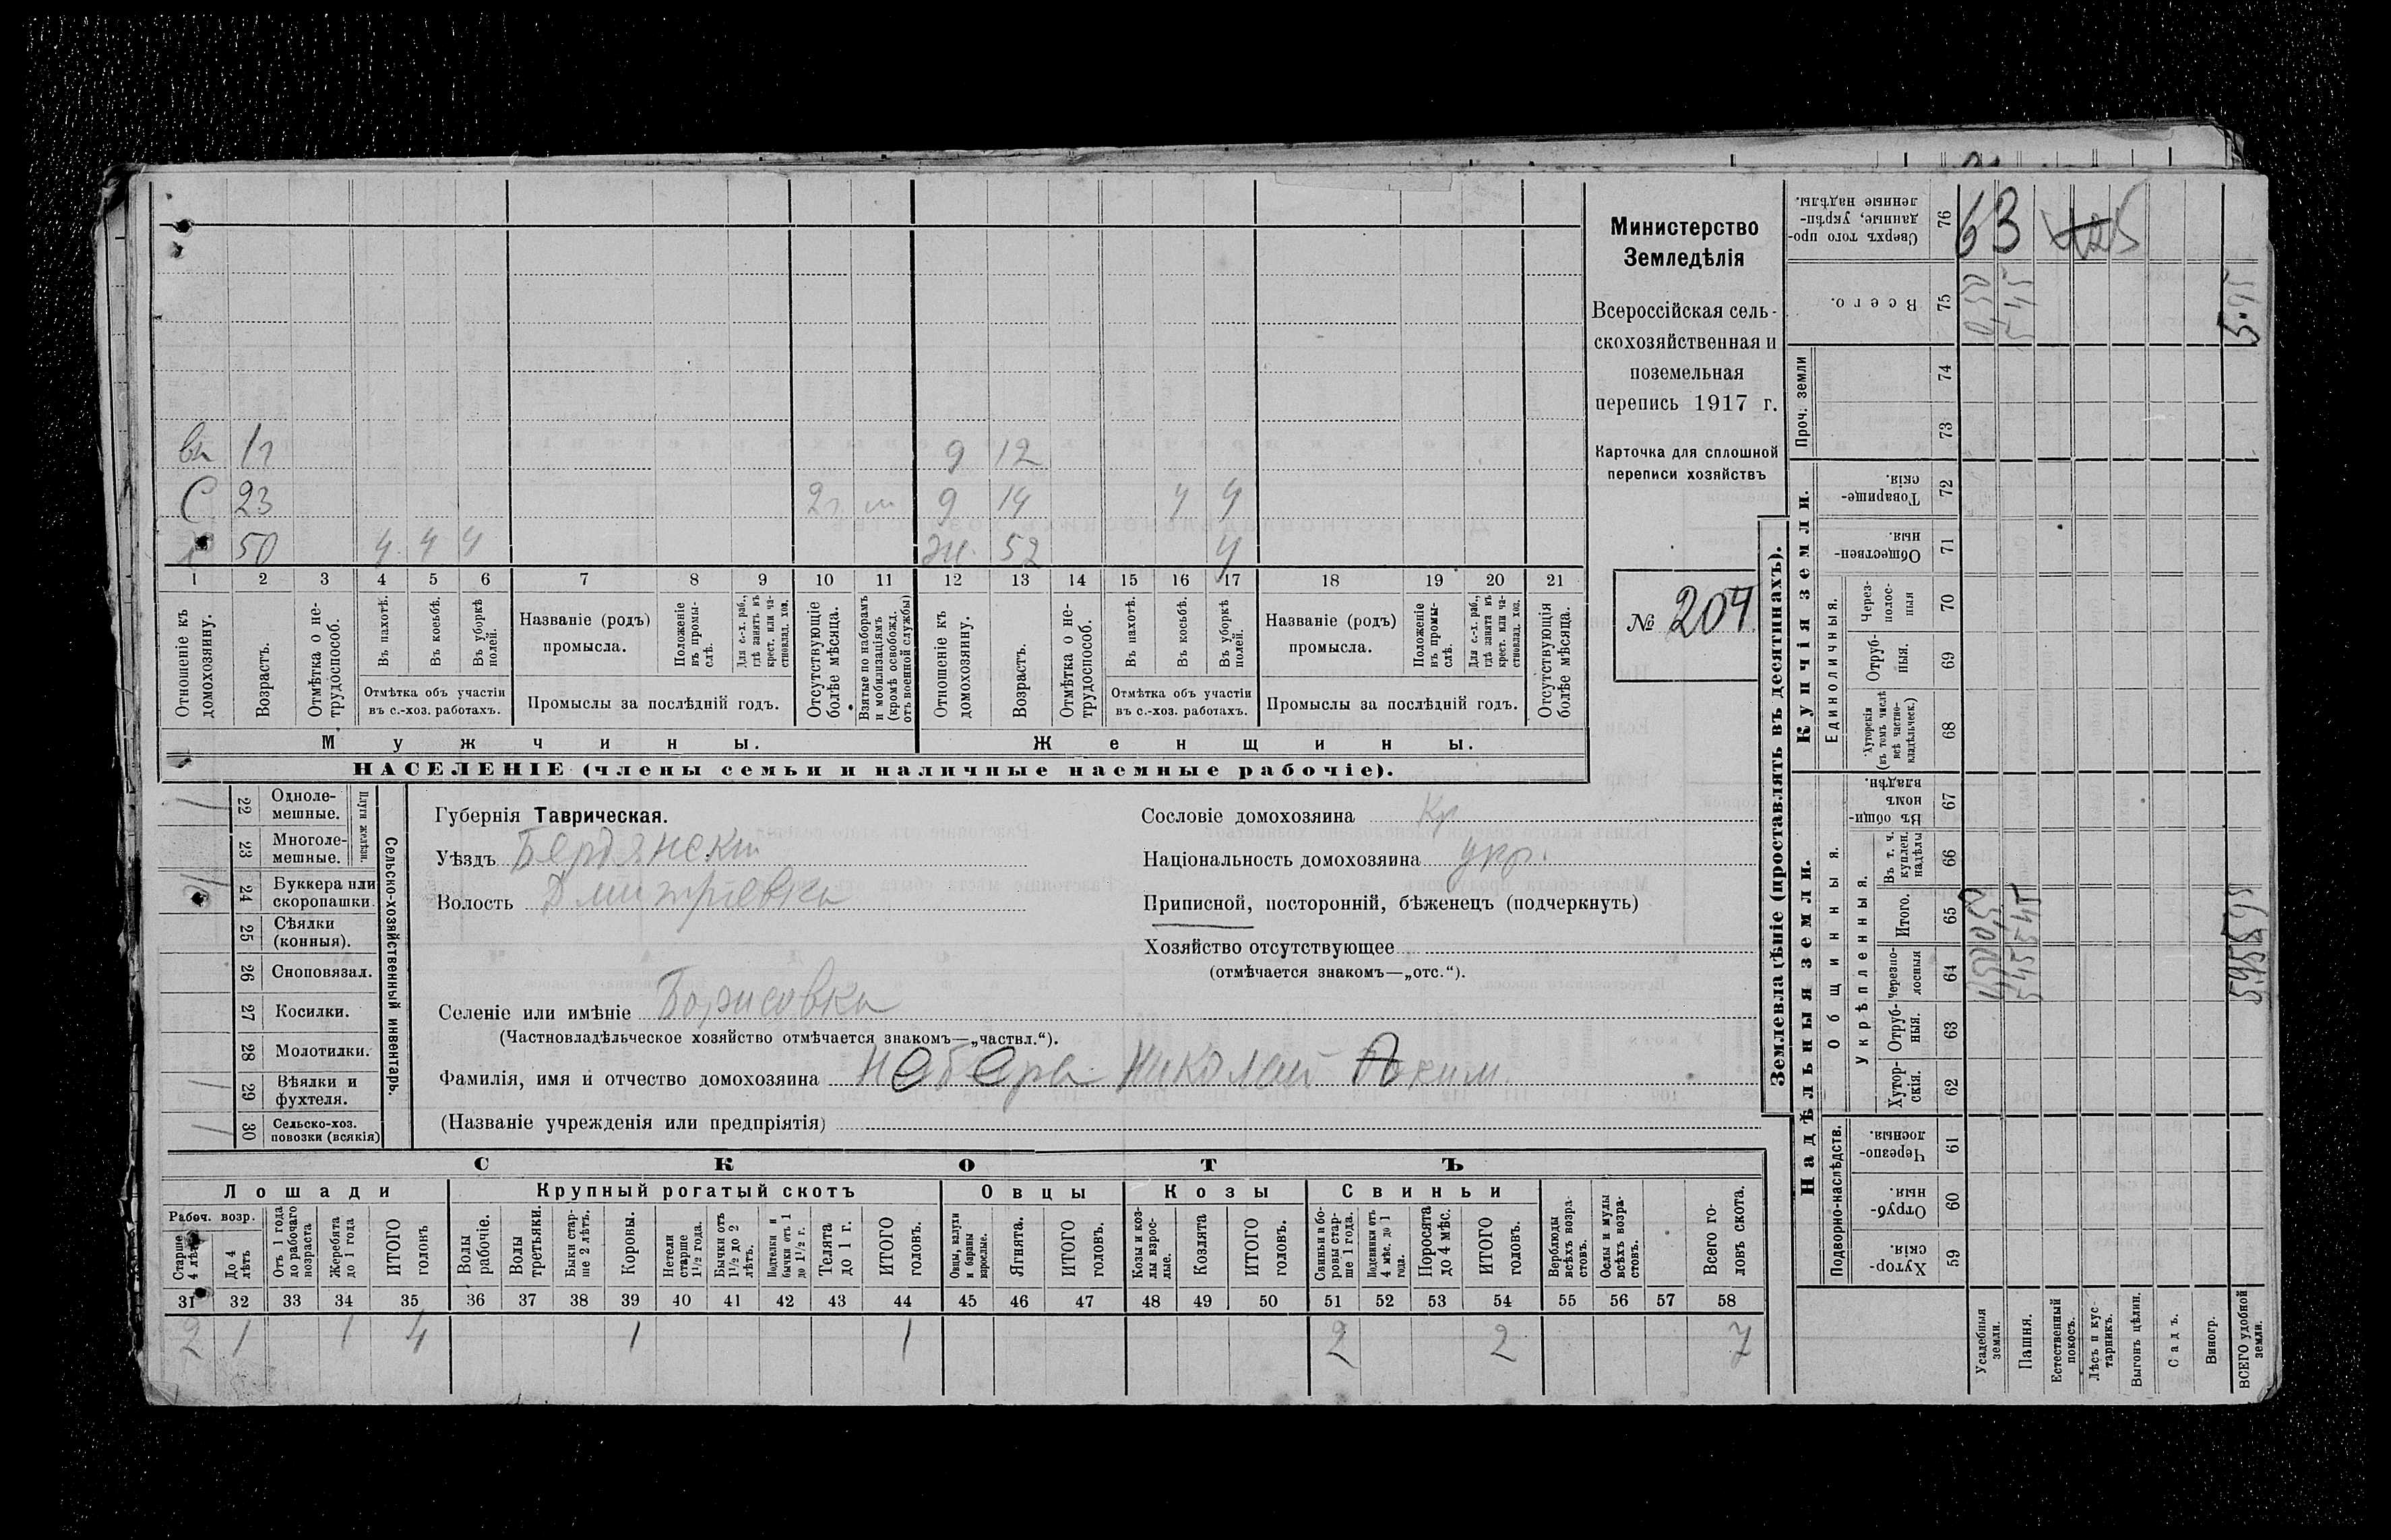 вн 1г 9 12
С 23 2г. м 9 14 ч ч
х 50 ч ч ч Жн. 52 ч
1 2 3 4 5 6 7 8 9 10 11 12 13 14 15 16 17 18 19 20 21
Отношеніе къ домохозяину.
Возрастъ.
Отмѣтка о не-трудоспособ.
Въ пахотѣ.
Въ косьбѣ.
Въ уборкѣ полей.
Отмѣтка объ участіи
въ с.-хоз. работахъ.
Названіе (родъ)
промысла.
Положеніе въ промы-слѣ.
Для с.-х. раб., гдѣ занятъ въ крест. или ча-стновлад. хоз.
Промыслы за послѣдній годъ.
Отсутствующіе болѣе мѣсяца.
Взятые по наборамъ и мобилизаціямъ (кромѣ освобожд. отъ военной службы)
Отношеніе къ домохозяину.
Возрастъ.
Отмѣтка о не-трудоспособ.
Въ пахотѣ.
Въ косьбѣ.
Въ уборкѣ полей.
Отмѣтка объ участіи
въ с.-хоз. работахъ.
Названіе (родъ)
промысла.
Положеніе въ промы-слѣ.
Для с.-х. раб., гдѣ занята въ крест. или ча-стновлад. хоз.
Промыслы за послѣдній годъ.
Отсутствующія болѣе мѣсяца.
Мужчины.
Женщины.
НАСЕЛЕНІЕ (члены семьи и наличные наемные рабочіе).
Министерство
Земледѣлія
Всероссійская сель-
скохозяйственная и
поземельная
перепись 1917 г.
Карточка для сплошной
переписи хозяйствъ
№ 204
Сельско-хозяйственный инвентарь.
Плуги желѣзн.
1 22 Одноле-
мешные.
23 Многоле-
мешные.
24 Буккера или
скоропашки.
25 Сѣялки
(конныя).
26 Сноповязал.
27 Косилки.
28 Молотилки.
1 29 Вѣялки и
фухтеля.
1 30 Сельско-хоз.
повозки (всякія)
Губернія Таврическая.
Уѣздъ Бердянскій
Волость Дмитріевка
Селеніе или имѣніе Борисовка
(Частновладѣльческое хозяйство отмѣчается знакомъ—„частвл.“).
Фамилія, имя и отчество домохозяина Небера Николай Аким.
(Названіе учрежденія или предпріятія)
Сословіе домохозяина Кр
Національность домохозяина укр.
Приписной, посторонній, бѣженецъ (подчеркнуть)
Хозяйство отсутствующее
(отмѣчается знакомъ—„отс.“).
СКОТЪ
Лошади Крупный рогатый скотъ Овцы Козы Свиньи
Рабоч. возр.
Старше 4 лѣтъ
До 4 лѣтъ
Отъ 1 года до рабочаго возраста
Жеребята до 1 года
ИТОГО головъ
Волы рабочіе.
Волы третьяки.
Быки стар-ше 2 лѣтъ.
Коровы.
Нетели старше 1½ года.
Бычки отъ 1½ до 2 лѣтъ.
Подтелки и бычки отъ 1 до 1½ г.
Телята до 1 г.
ИТОГО головъ.
Овцы, валухи и бараны взрослые.
Ягнята.
ИТОГО головъ.
Козы и коз-лы взрос-лые.
Козлята
ИТОГО головъ.
Свиньи и бо-ровы стар-ше 1 года.
Подсвинки отъ 4 мѣс. до 1 года.
Поросята до 4 мѣс.
ИТОГО головъ.
Верблюды всѣхъ возра-стовъ.
Ослы и мулы всѣхъ возра-стовъ.
Всего го-ловъ скота.
31 32 33 34 35 36 37 38 39 40 41 42 43 44 45 46 47 48 49 50 51 52 53 54 55 56 57 58
2 1 1 4 1 1 2 2 7
Землевладѣніе (проставлять въ десятинахъ).
Надѣльныя земли.
Купчія земли.
Проч. земли
Подворно-наслѣдств.
Общинныя.
Укрѣпленныя.
Единоличныя.
Сверхъ того про-данные, укрѣп-ленные надѣлы. 76 63
Всего. 75 0,50 5 45 5.95
74
73
Товарище-скія. 72
Обществен-ныя. 71
Через-полос-ныя 70
Отруб-ныя. 69
Хуторскія (въ томъ числѣ всѣ частно-владѣльческ.) 68
Въ общи-номъ владѣн. 67
Въ т. ч. куплен. надѣлы 66
Итого. 65
Черезпо-лосныя 64
Отруб-ныя. 63
Хутор-скія. 62
Черезпо-лосныя. 61
Отруб-ныя. 60
Хутор-скія. 59
Усадебныя земли.
Пашня.
Естественный покосъ.
Лѣсъ и кус-тарникъ.
Выгонъ цѣлин.
Садъ.
Виногр.
ВСЕГО удобной земли.